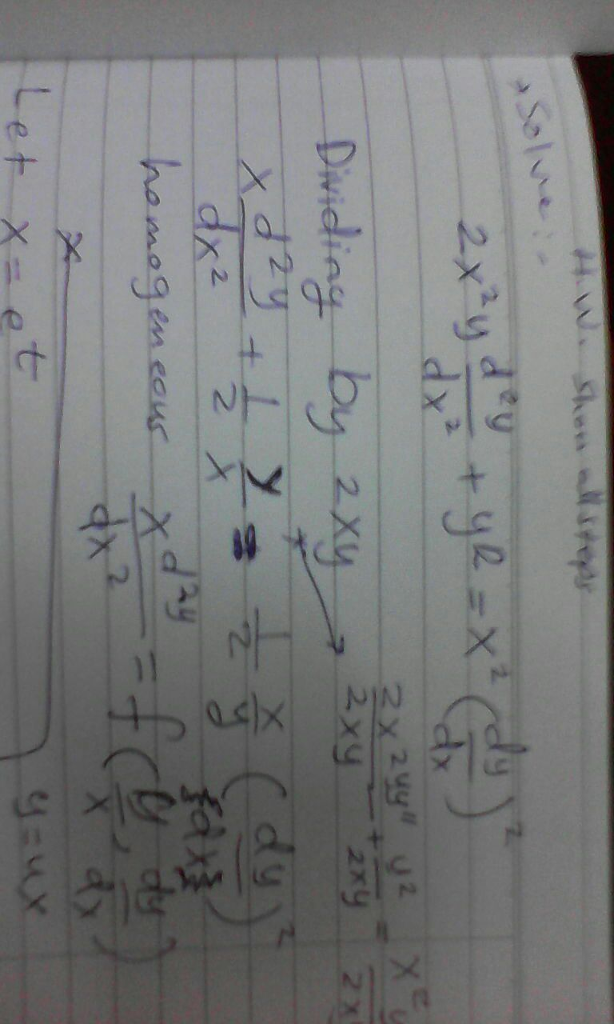 H.W. show all steps
→ Solve :-
2x²y d²y/dx² + y² = x² (dy/dx)²
2x²yy"/2xy + y²/2xy =
Dividing by 2xy
x d²y/dx² + 1/2 y/x = 1/2 x/y (dy/dx)²
homogeneous x d²y/dx² = f(y/x, dy/dx)
Let x = eᵗ y = ux